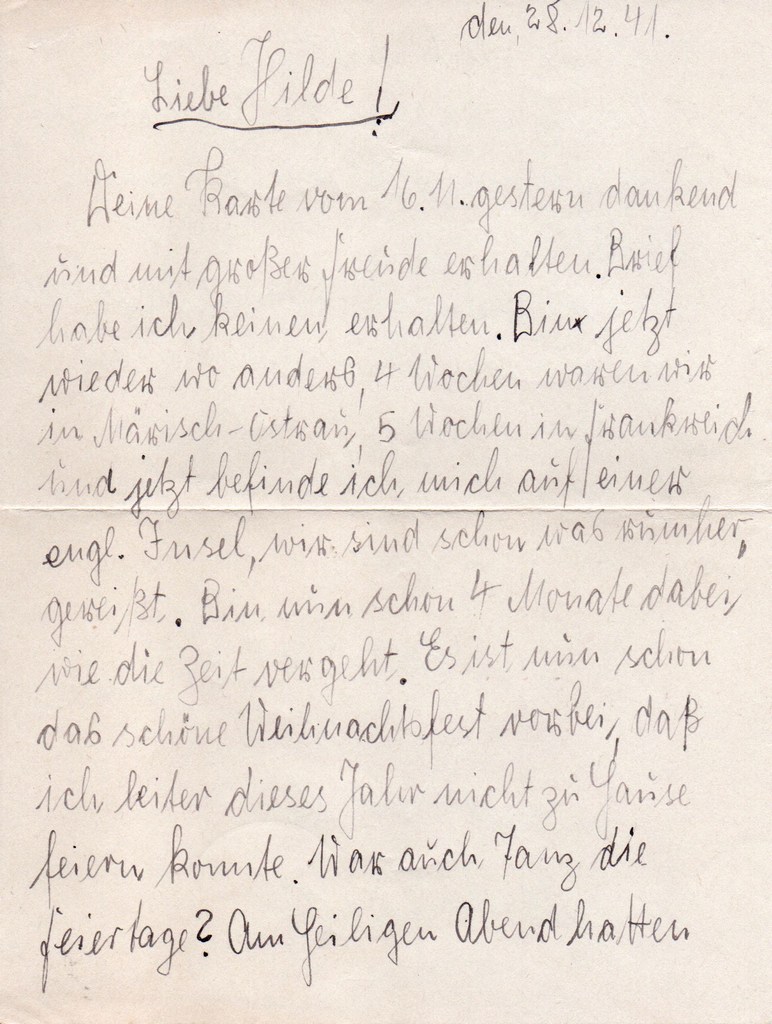 den, 28.12.41.
Liebe Hilde!
Deine Karte vom 16.11. gestern dankend
und mit großer Freude erhalten. Brief
habe ich keinen erhalten. Bin jetzt
wieder wo anders, 4 Wochen waren wir
in Märisch-Ostrau, 5 Wochen in Frankreich
und jetzt befinde ich mich auf einer
engl. Insel, wir sind schon was rumher„
gereißt. Bin nun schon 4 Monate dabei,
wie die Zeit vergeht. Es ist nun schon
das schöne Weihnachtsfest vorbei, daß
ich leiter dieses Jahr nicht zu Hause
feiern konnte. War auch Tanz die
Feiertage? Am Heiligen Abend hatten